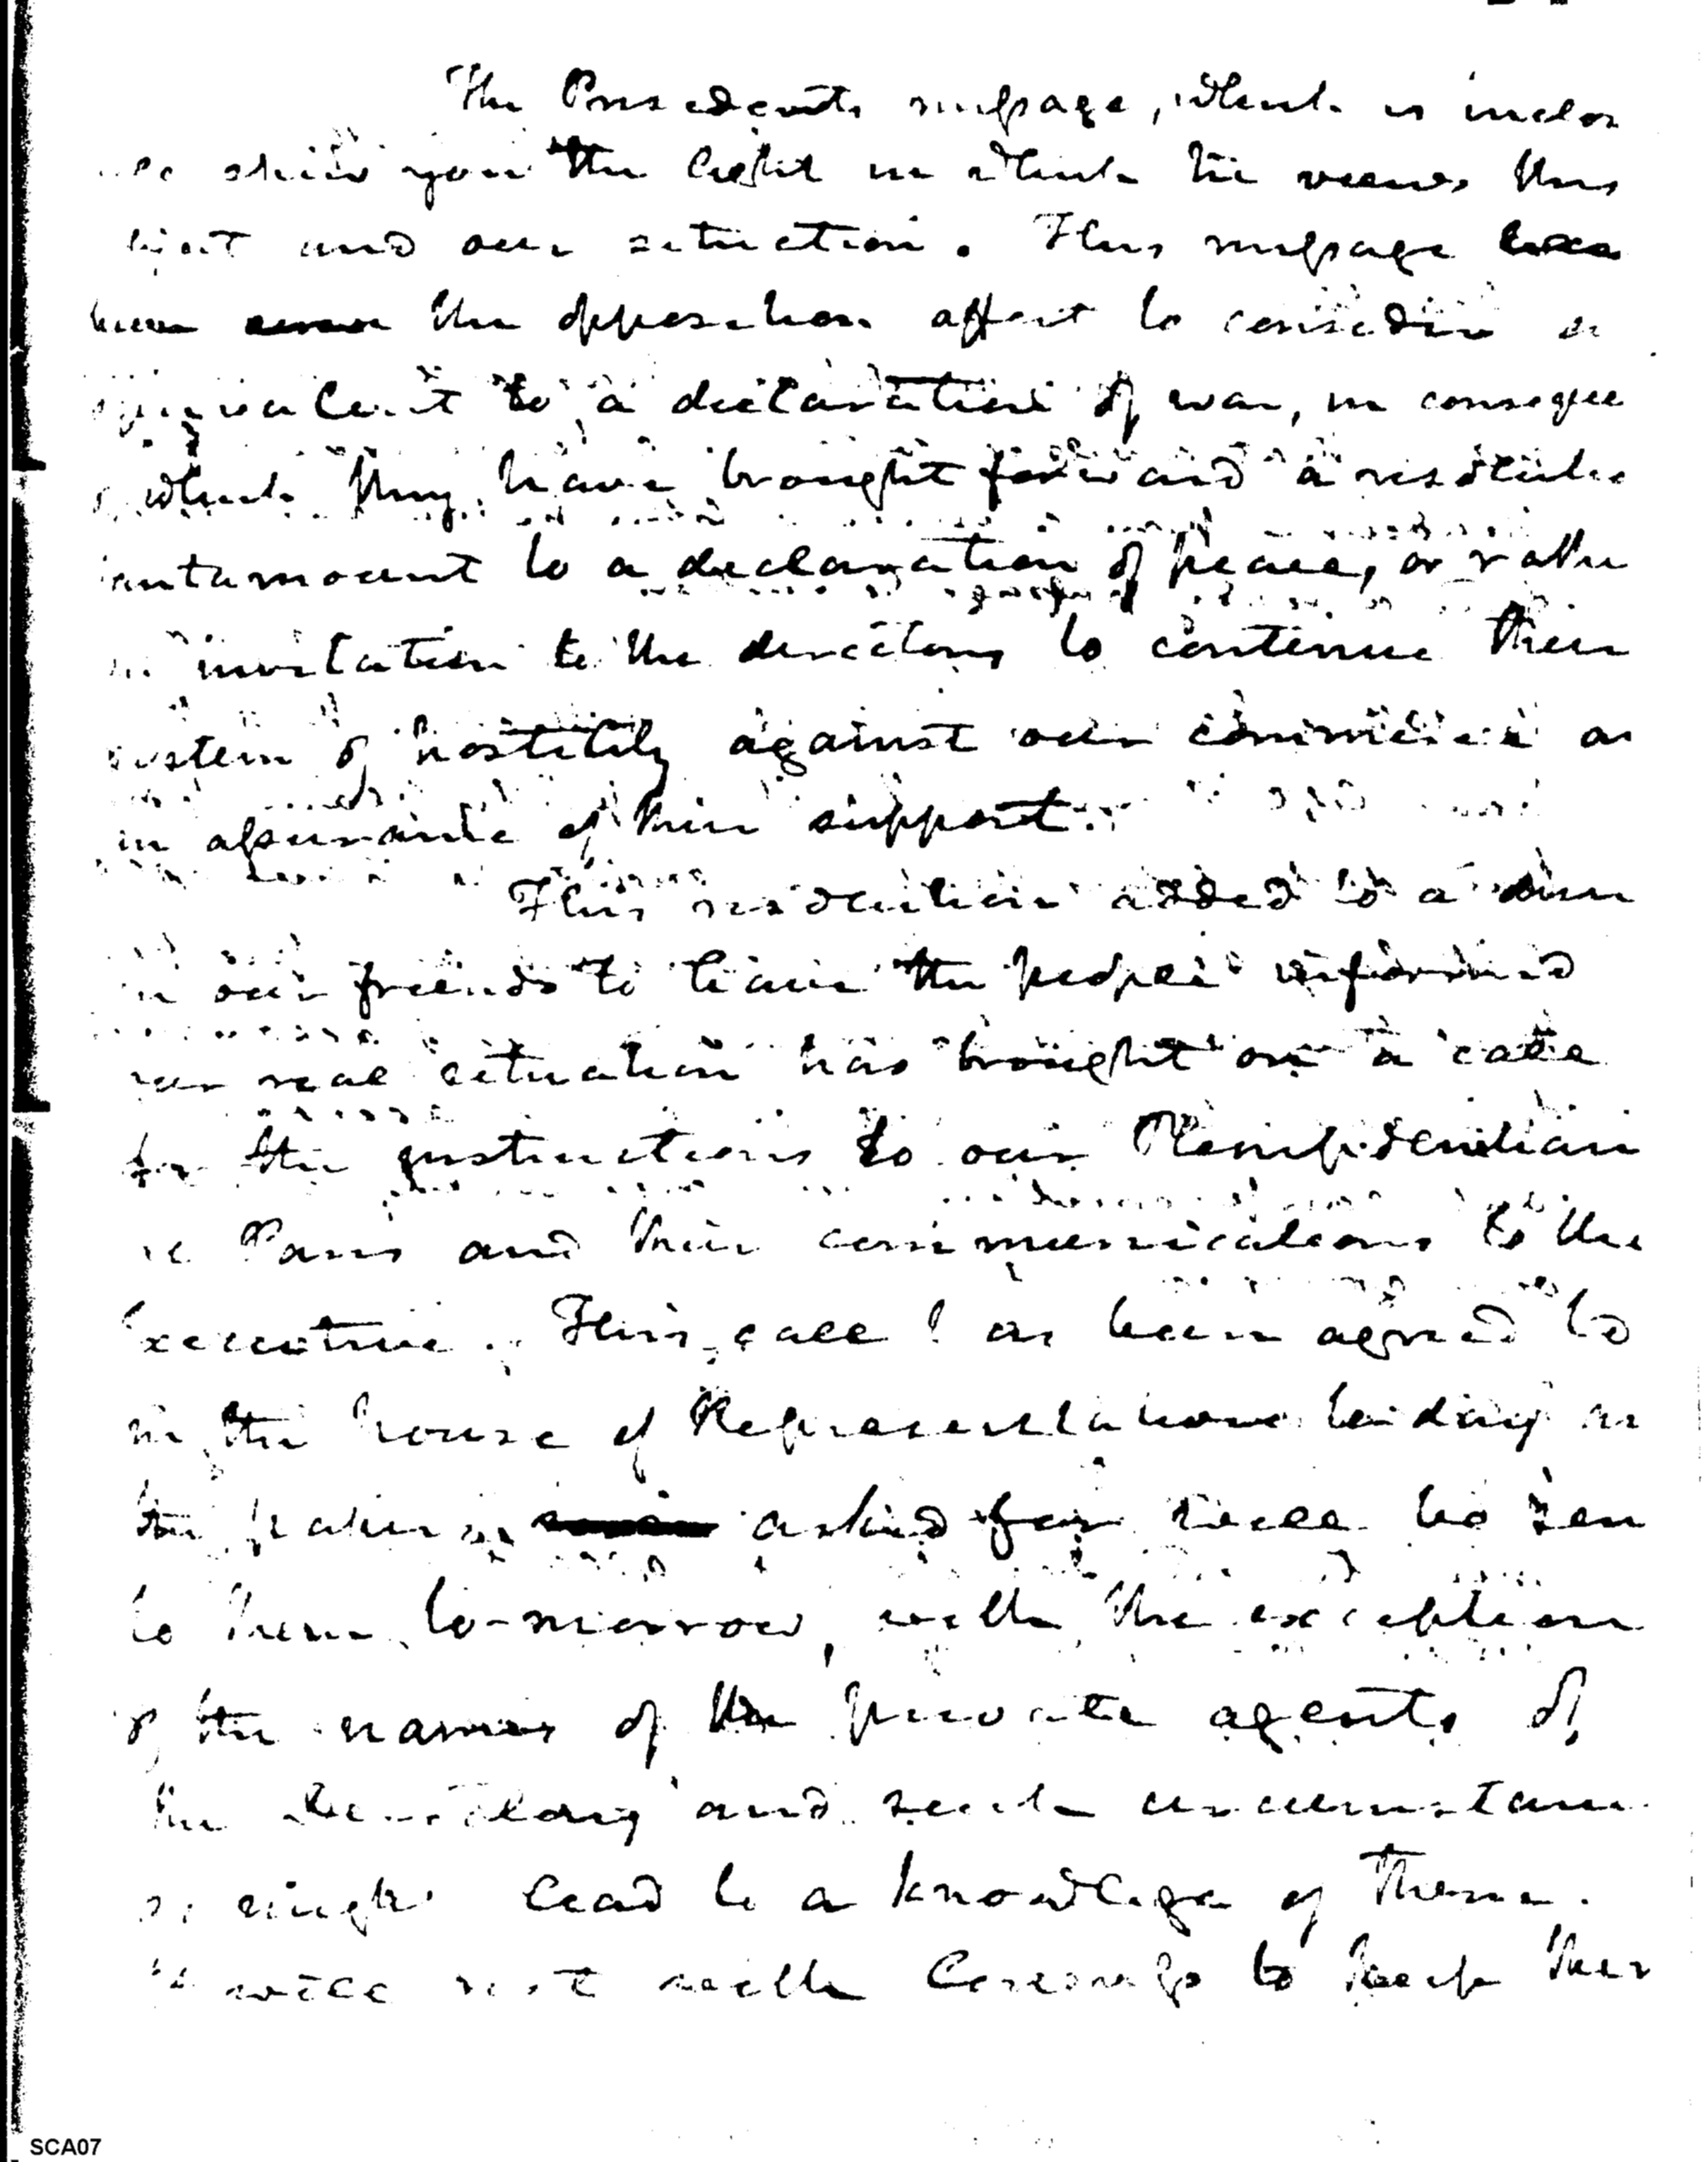 The Presidents message, which is inclos
shew you the light in which he views this
ject and our situation. This message
the opposition affect to consider as
equivalent to a declaration of war, in conseque
which they have brought forward a resolutio
antamount to a declaration of peace, or rathe
invitation to the directory to continue their
system of hostility against our commerce an
an assurance of their support.
This resolution added to a
in our friends to have the people informed
our real situation has brought on a call
for the instructions to our Plenipotentiari
Paris and their communications to the
Executive. This call has been agreed to
in the house of Representatives to day an
the papers asked for will be sen
to them to-morrow, with the exception
of the names of the private agents of
the directory and such circumstan
as might lead to a knowledge of them.
It will rest with Congress to keep them
SCA07